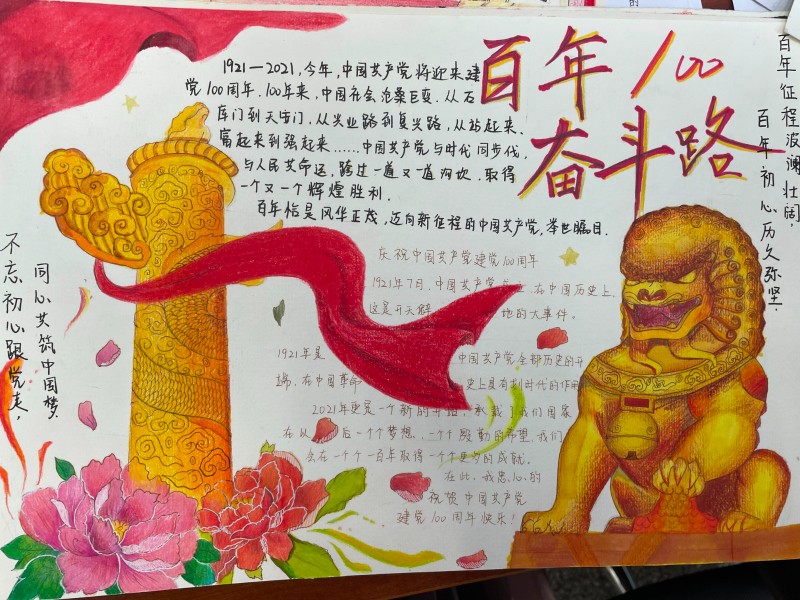 百年100
奋斗路
1921—2021,今年,中国共产党将迎来建
党100周年.100年来,中国社会沧桑巨变.从石
库门到天安门,从兴业路到复兴路,从站起来、
富起来到强起来……中国共产党与时代同步伐,
与人民共命运,跨过一道又一道沟坎.取得
一个又一个辉煌胜利.
百年恰是风华正茂,迈向新征程的中国共产党,举世瞩目.
百年征程波澜壮阔,
百年初心历久弥坚.
同心共筑中国梦
不忘初心跟党走,
庆祝中国共产党建党100周年
1921年7月.中国共产党 在中国历史上.
这是开天辟 地的大事件。
1921年是 中国共产党全部历史的开
端.在中国革命 史上具有划时代的作用
2021年更是一个新的开始.承载了我们国家
在从 后一个梦想.一个殷勤的希望.我们
会在一个一百年取得一个 的成就.
在此.我
祝贺中国共产党
建党100周年快乐!